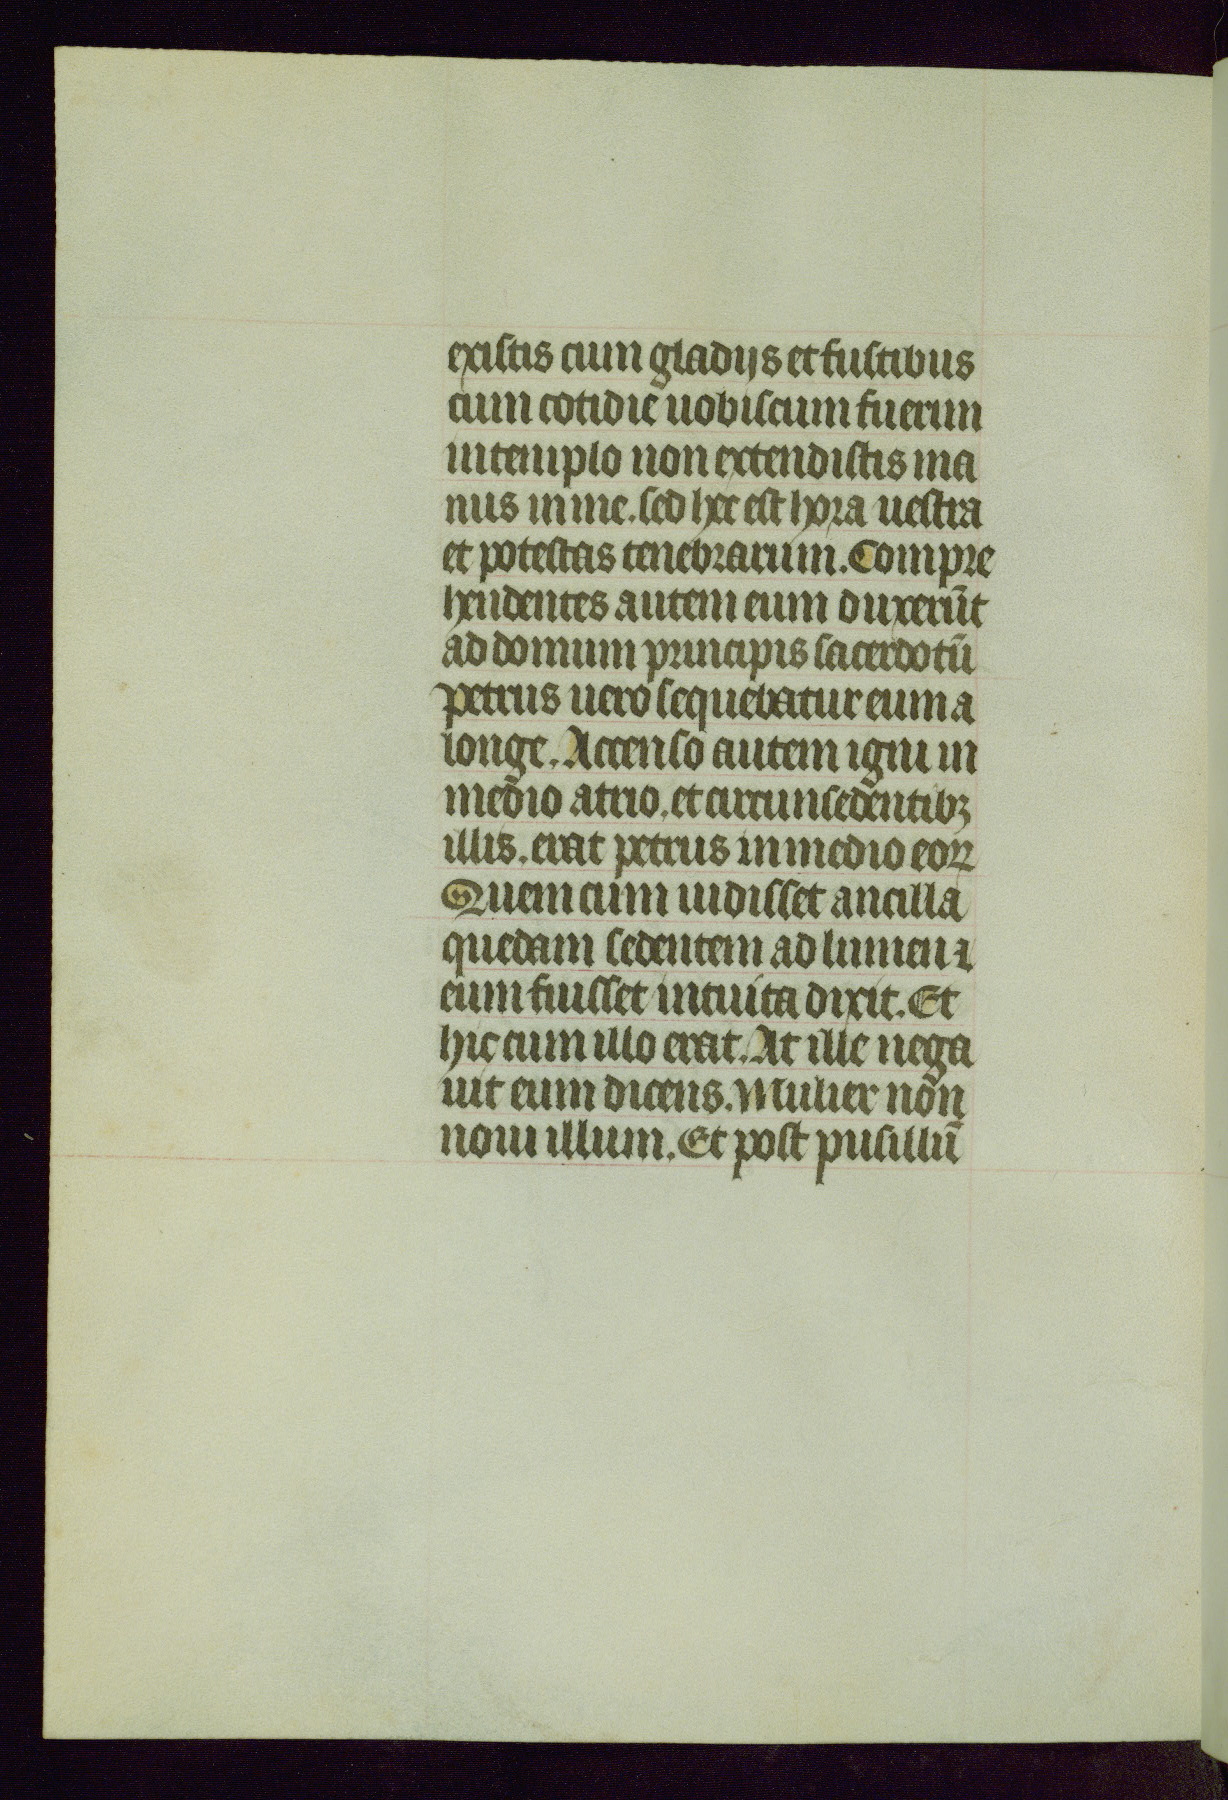 existis cum gladijs et fustibus
cum cotidie uobiscum fuerim
in templo non extendistis ma
nus in me. sed hec est hora uestra
et potestas tenebrarum. Compre
hendentes autem eum duxerūt
ad domum principis sacerdotū
petrus uero sequebatur eum a
longe. Accenso autem igni in
medio atrio. et circunsedentibꝫ
illis. erat petrus in medio eoꝝ
Quem cum uidisset ancilla
quedam sedentem ad lumen ⁊
eum fuisset intuita dixit. Et
hic cum illo erat. At ille nega
uit eum dicens. Mulier non
noui illum. Et post pusillū